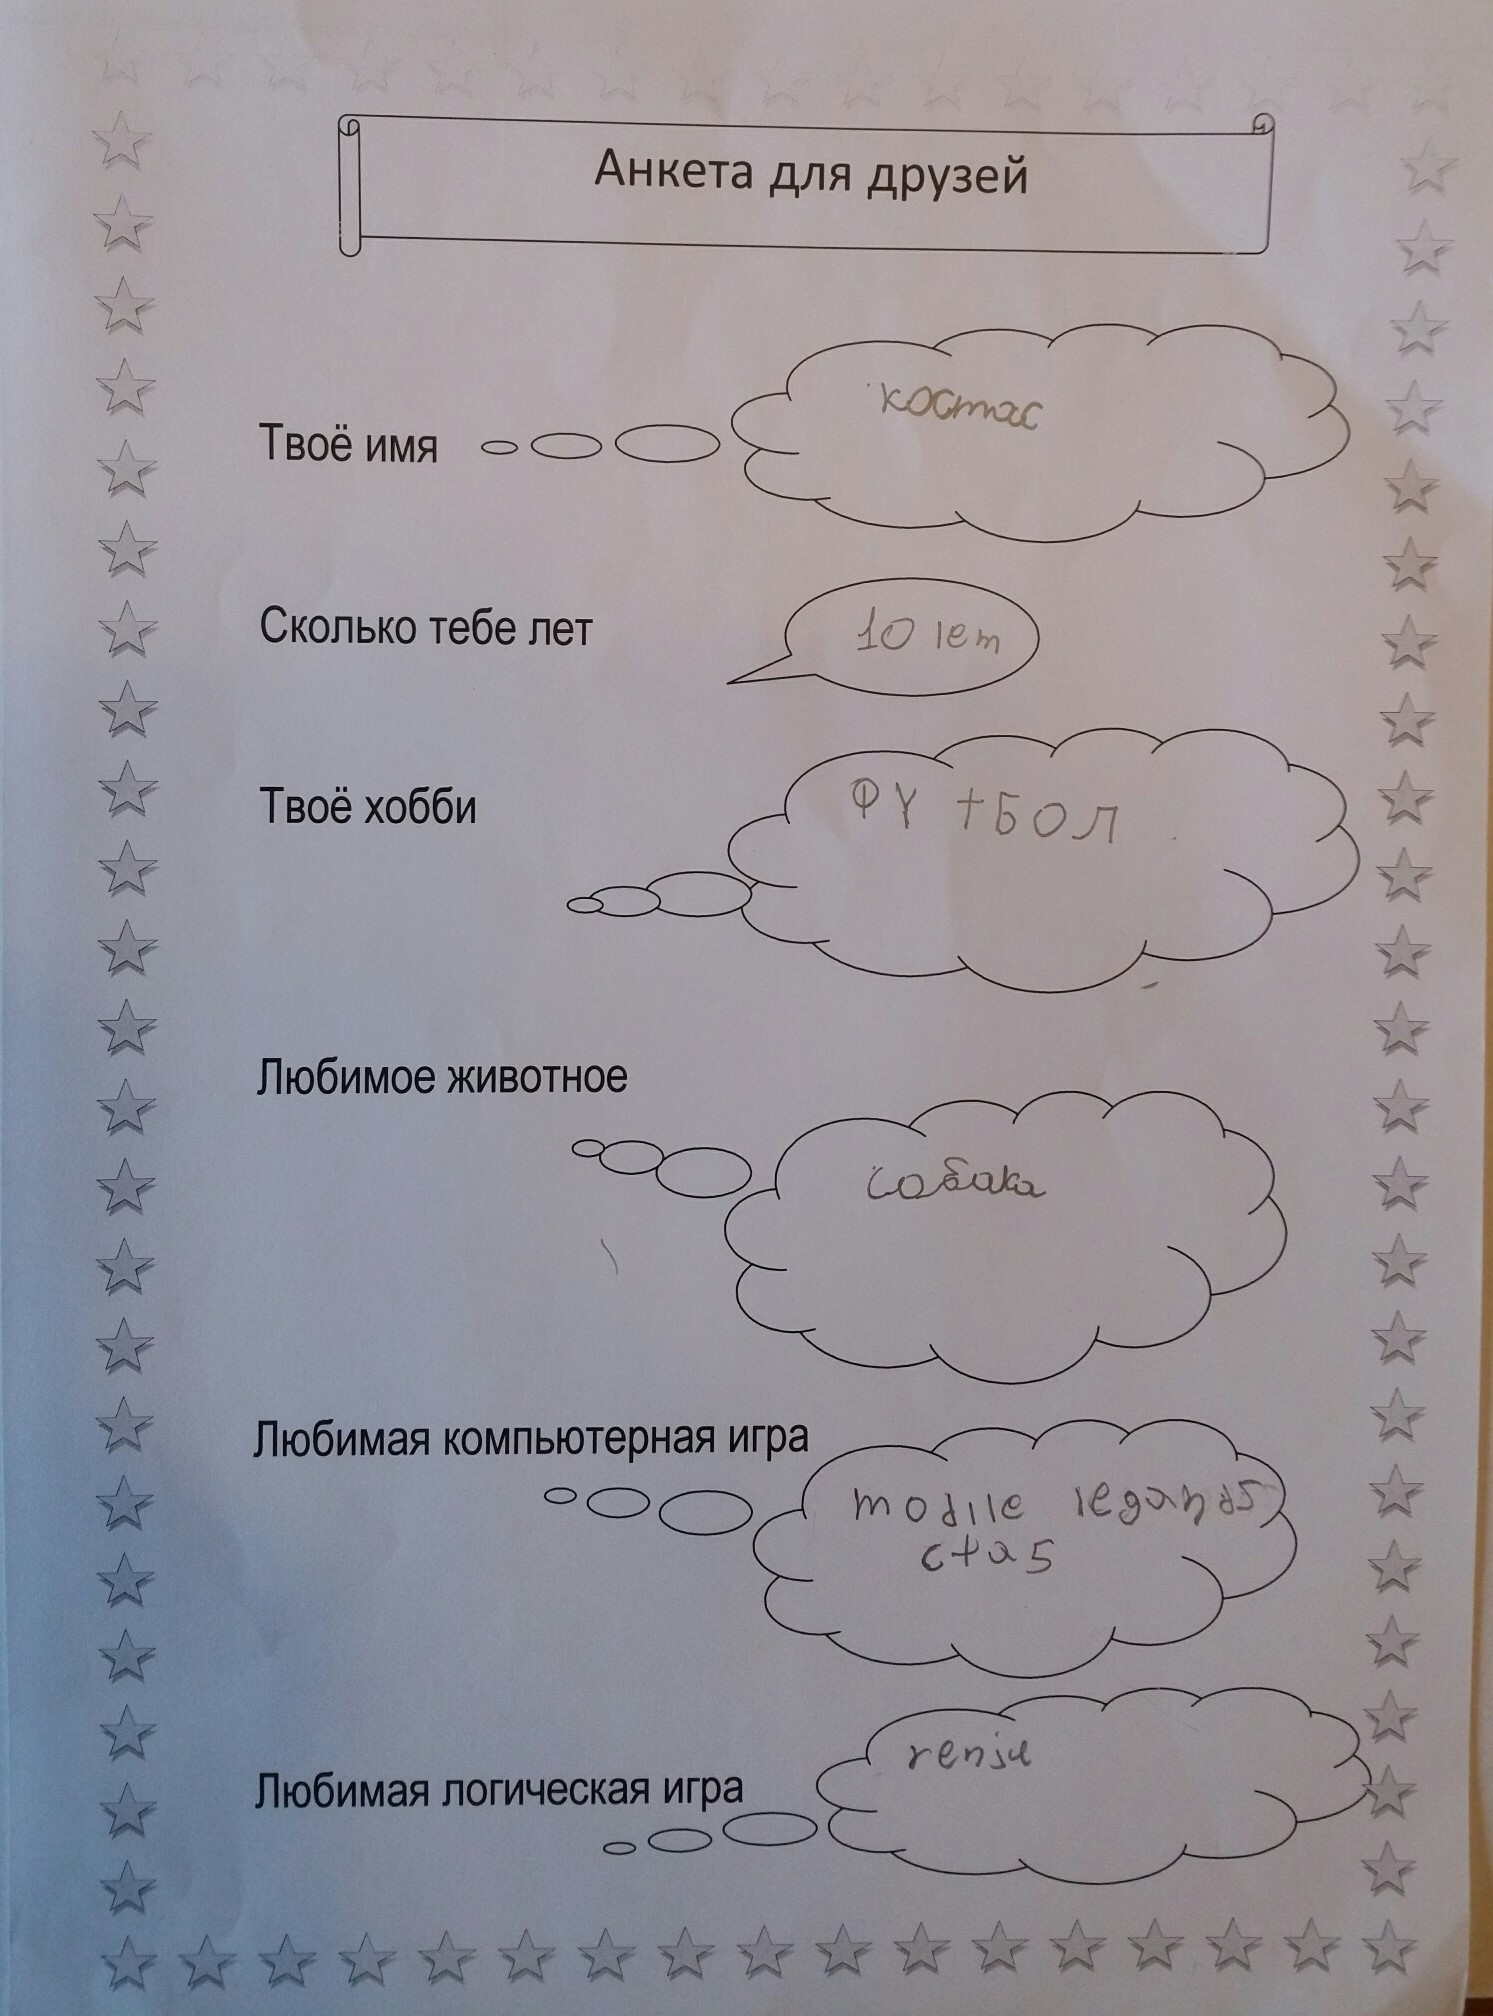 Анкета для друзей
Твоё имя
костас
Сколько тебе лет
10 lет
Твоё хобби
ФУтБОЛ
Любимое животное
собака
Любимая компьютерная игра
modile legands
cta5
Любимая логическая игра
renju